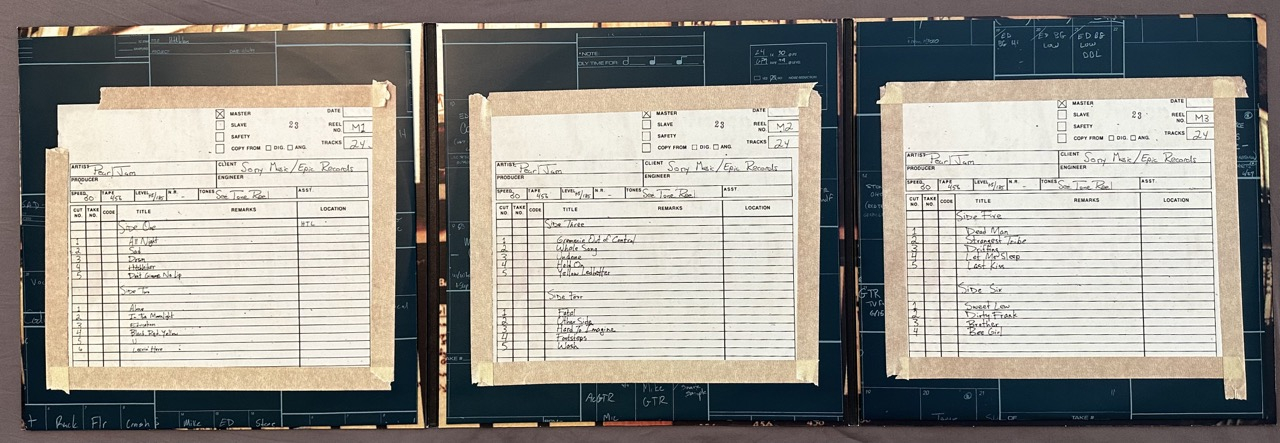 NOTE:
DLY TIME FOR:
24
30
ED
BG HI
ED BG
LOW
ED BG
LOW
DDL
MASTER
SLAVE
SAFETY
COPY FROM DIG. ANG.
23
DATE
REEL NO. M1
TRACKS 24
ARTIST Pearl Jam
CLIENT Sony Music/Epic Records
PRODUCER
ENGINEER
SPEED 30 TAPE 456 LEVEL N.R. - TONES See Tone Reel ASST.
CUT NO. TAKE NO. CODE TITLE REMARKS LOCATION
Side One HTL
1 All Night
2 Sad
3 Down
4 Hitchhiker
5 Don't Gimme No Lip
Side Two
1 Alone
2 In The Moonlight
3 Education
4 Black Red Yellow
5 U
6 Leavin' Here
+ Rock Flr Crash Mike ED Stone
MASTER
SLAVE
SAFETY
COPY FROM DIG. ANG.
23
DATE
REEL NO. M2
TRACKS 24
ARTIST Pearl Jam
CLIENT Sony Music/Epic Records
PRODUCER
ENGINEER
SPEED 30 TAPE 456 LEVEL N.R. - TONES See Tone Reel ASST.
CUT NO. TAKE NO. CODE TITLE REMARKS LOCATION
Side Three
1 Gremmie Out of Control
2 Whale Song
3 Undone
4 Hold On
5 Yellow Ledbetter
Side Four
1 Fatal
2 Other Side
3 Hard To Imagine
4 Footsteps
5 Wash
AcGTR
Mike
GTR
Mic
MASTER
SLAVE
SAFETY
COPY FROM DIG. ANG.
23
DATE
REEL NO. M3
TRACKS 24
ARTIST Pearl Jam
CLIENT Sony Music/Epic Records
PRODUCER
ENGINEER
SPEED 30 TAPE 456 LEVEL N.R. - TONES See Tone Reel ASST.
CUT NO. TAKE NO. CODE TITLE REMARKS LOCATION
Side Five
1 Dead Man
2 Strangest Tribe
3 Drifting
4 Let Me Sleep
5 Last Kiss
Side Six
1 Sweet Lew
2 Dirty Frank
3 Brother
4 Bee Girl
GTR
19 20 21 11
OF TAKE #